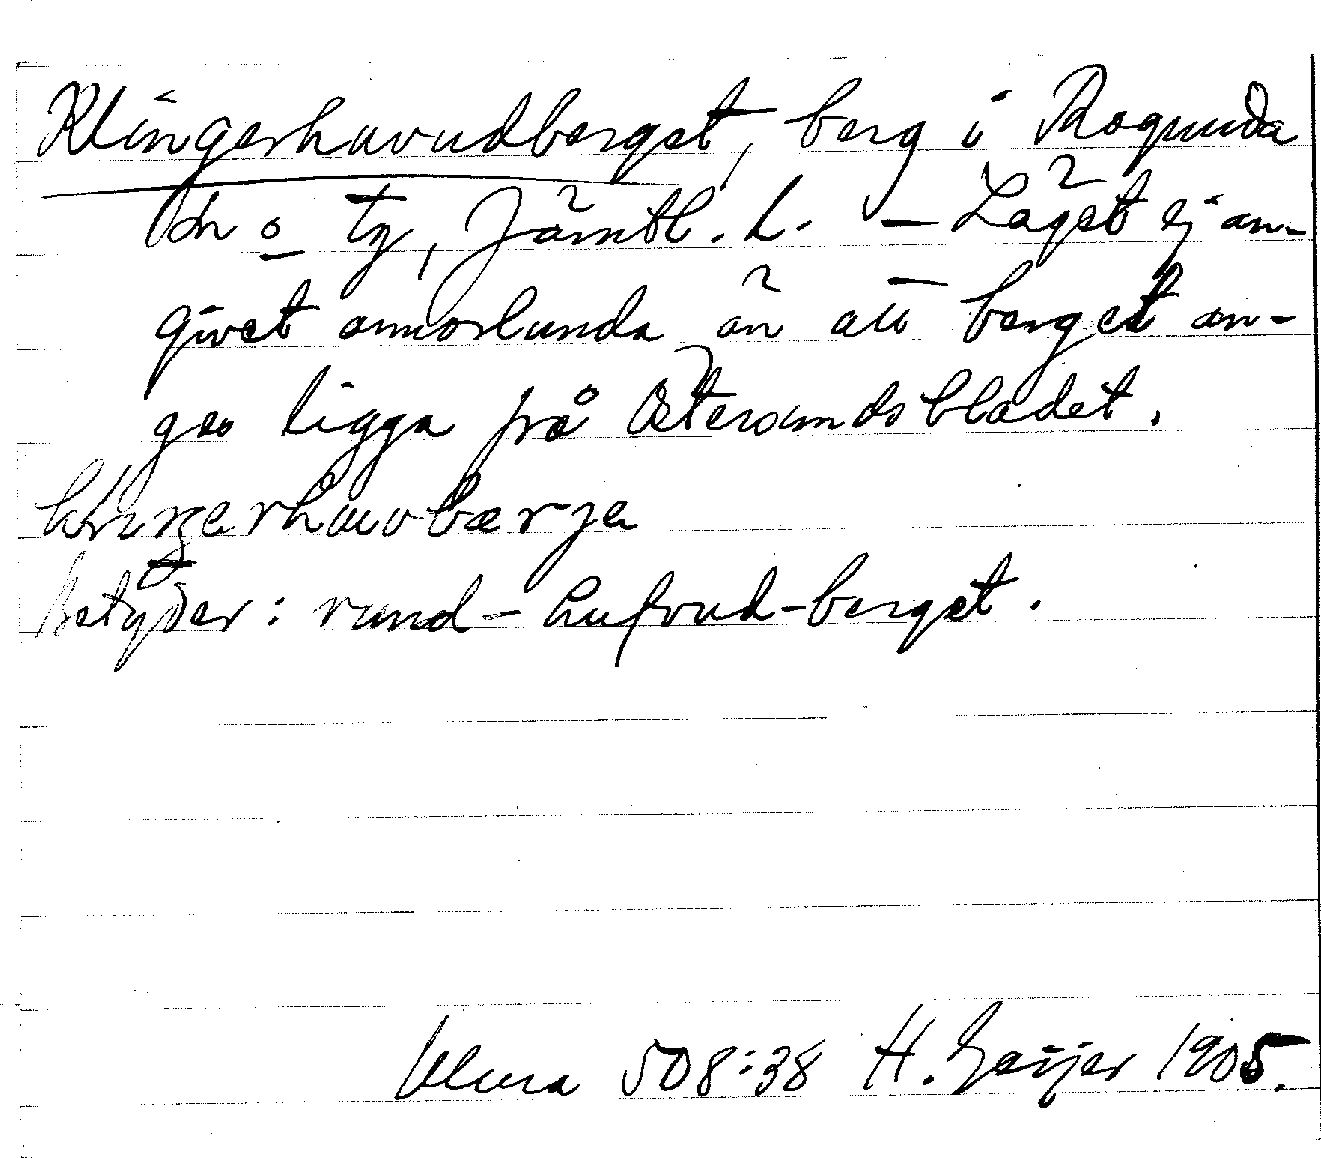 Klingerhavudberget, berg i Ragunda
sn o tg, Jämtl. L. – Läget ej an-
givet annorlunda än att berget an-
ges ligga på Östersundsbladet.
klingerhauvbærje
Betyder: rund-hufvud-berget.
Ulma 508:38 H. Geijer 1905.